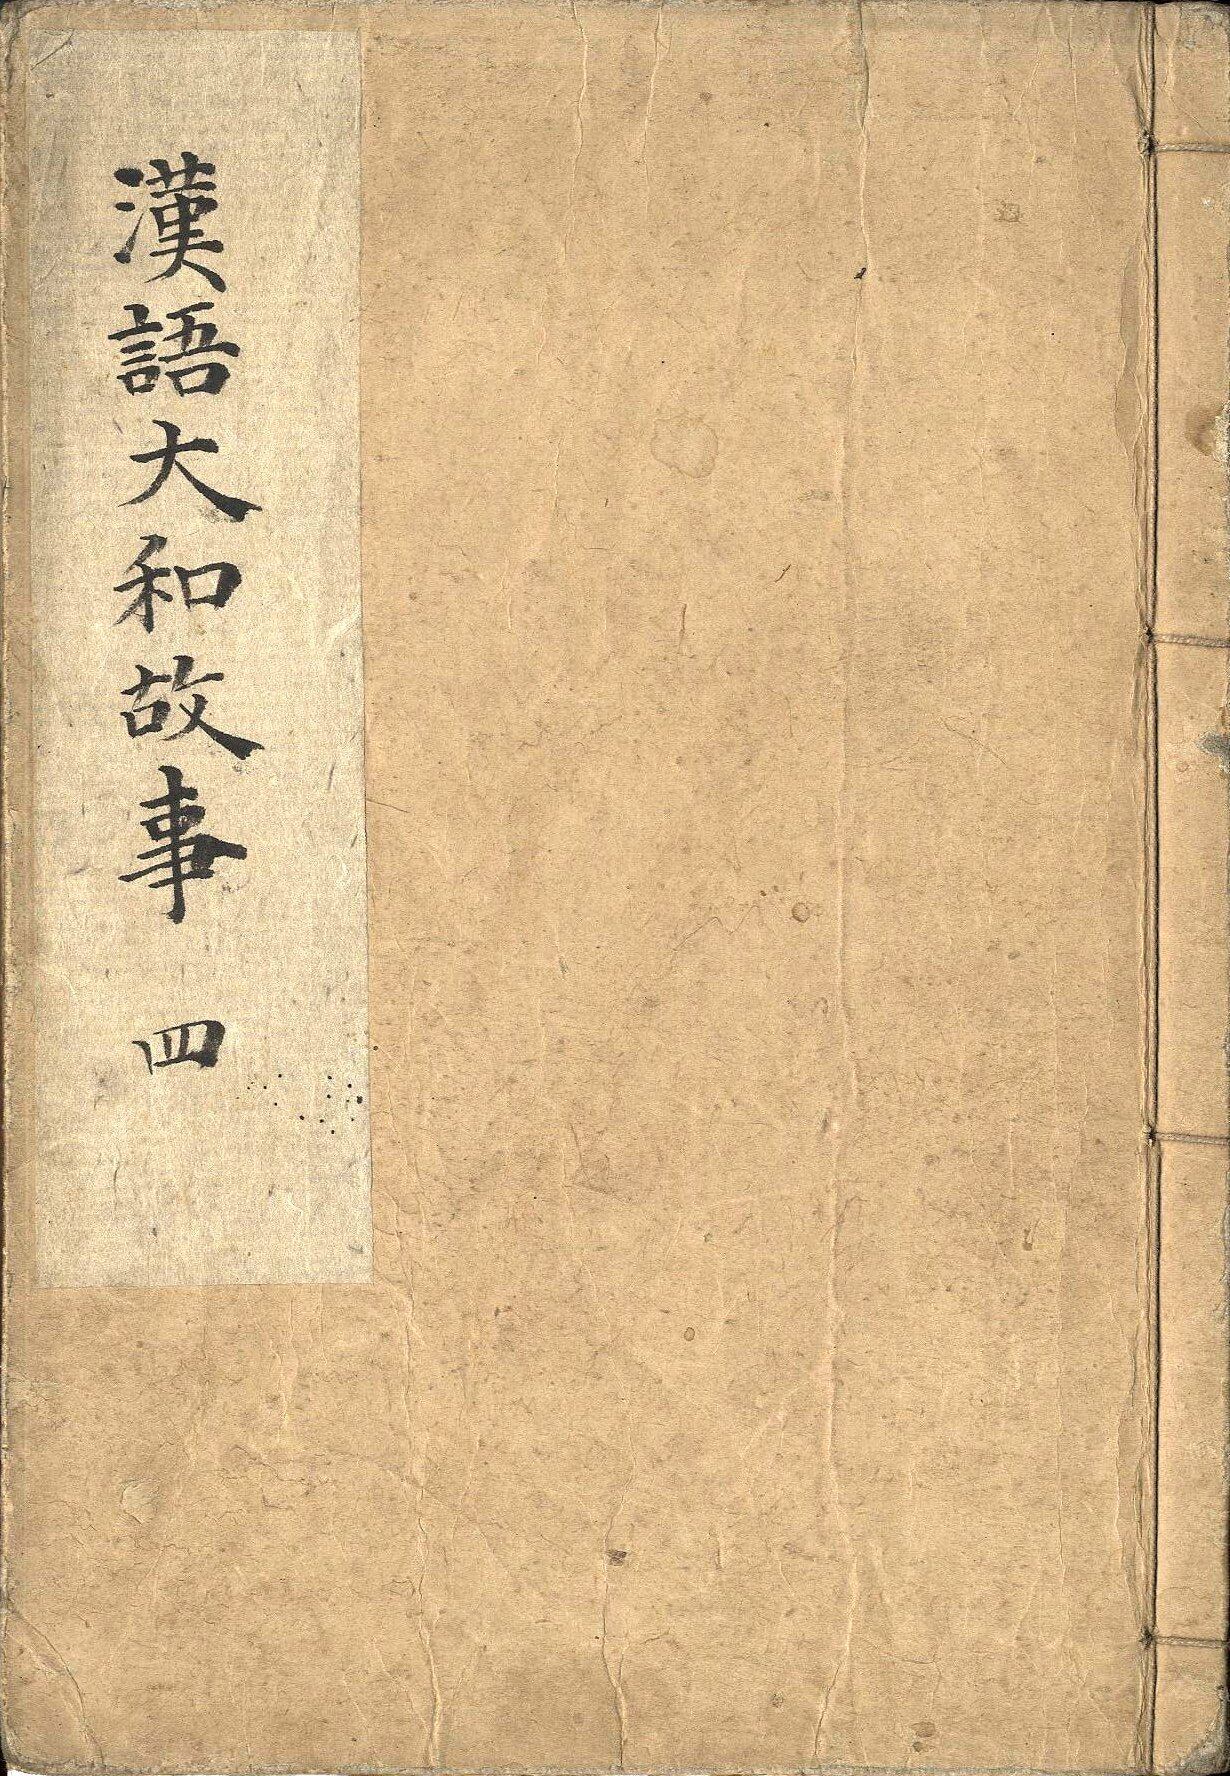 漢語大和故事 四